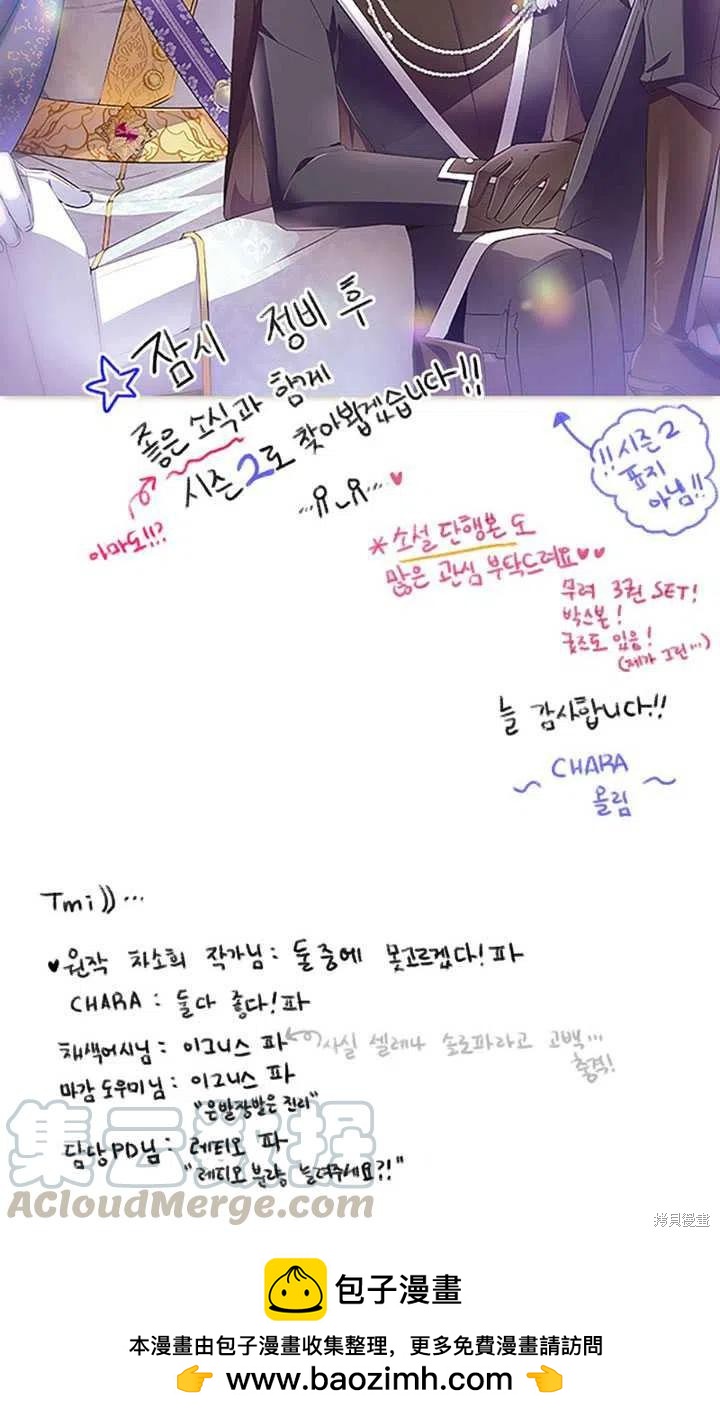 ☆잠시 정비 후
좋은 소식과 함께
시즌2로 찾아뵙겠습니다!!
아마도!!?
!!시즌2
표지
아님!!
*소설 단행본도
많은 관심 부탁드려요♥♥
무려 3권 SET!
박스본!
굿즈도 있음!
(제가 그린...)
늘 감사합니다!!
~ CHARA ~
올림
Tmi))...
♥원작 차소희 작가님: 둘중에 못고르겠다!파
CHARA: 둘다 좋다!파
채색어시님: 이그니스 파
사실 셀레나 솔로파라고 고백...
충격!
마감도우미님: 이그니스 파
"은발장발은 진리"
담당PD님: 레티오 파
"레티오 분량 늘려주세요?!"
集云数据
AcloudMerge.com
拷貝漫畫
包子漫畫
本漫畫由包子漫畫收集整理，更多免費漫畫請訪問
👉 www.baozimh.com 👈